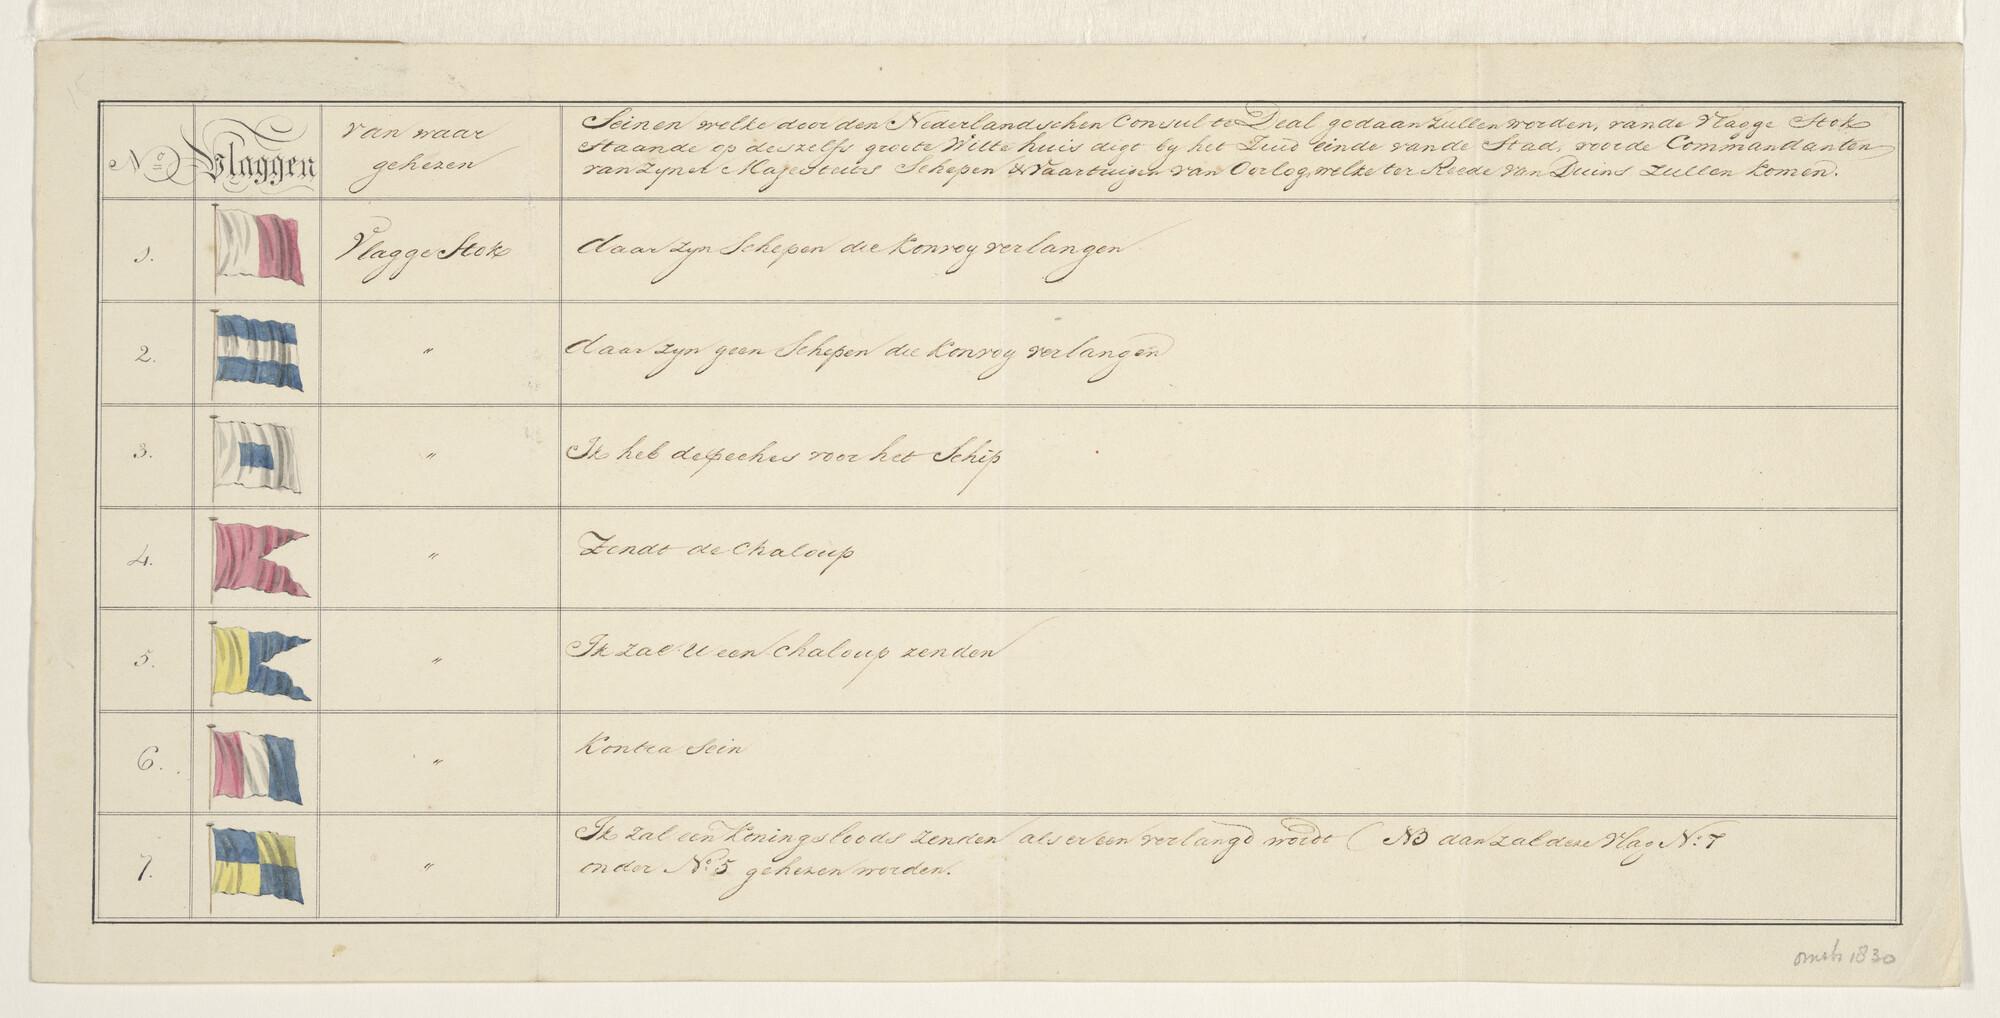 No Vlaggen van waar gehezen
Seinen welke door den Nederlandschen Consul te Deal gedaan zullen worden, van de Vlagge Stok
Staande op deszelfs groote Witte huis digt by het Zuid einde van de Stad, voor de Commandanten
van Zyne Majesteits Schepen & Vaartuigen van Oorlog, welke ter Reede van Duins zullen komen.
1. Vlagge Stok daar zyn Schepen die Konvoy verlangen
2. " daar zyn geen Schepen die Konvoy verlangen
3. " Ik heb depeches voor het Schip
4. " Zendt de Chaloup
5. " Ik zal U een Chaloup zenden
6. " Kontra Sein
7. " Ik zal een Koningsloods zenden als er een verlangd wordt (NB dan zal deze Vlag No. 7
onder No. 5 gehezen worden.
omstr 1830